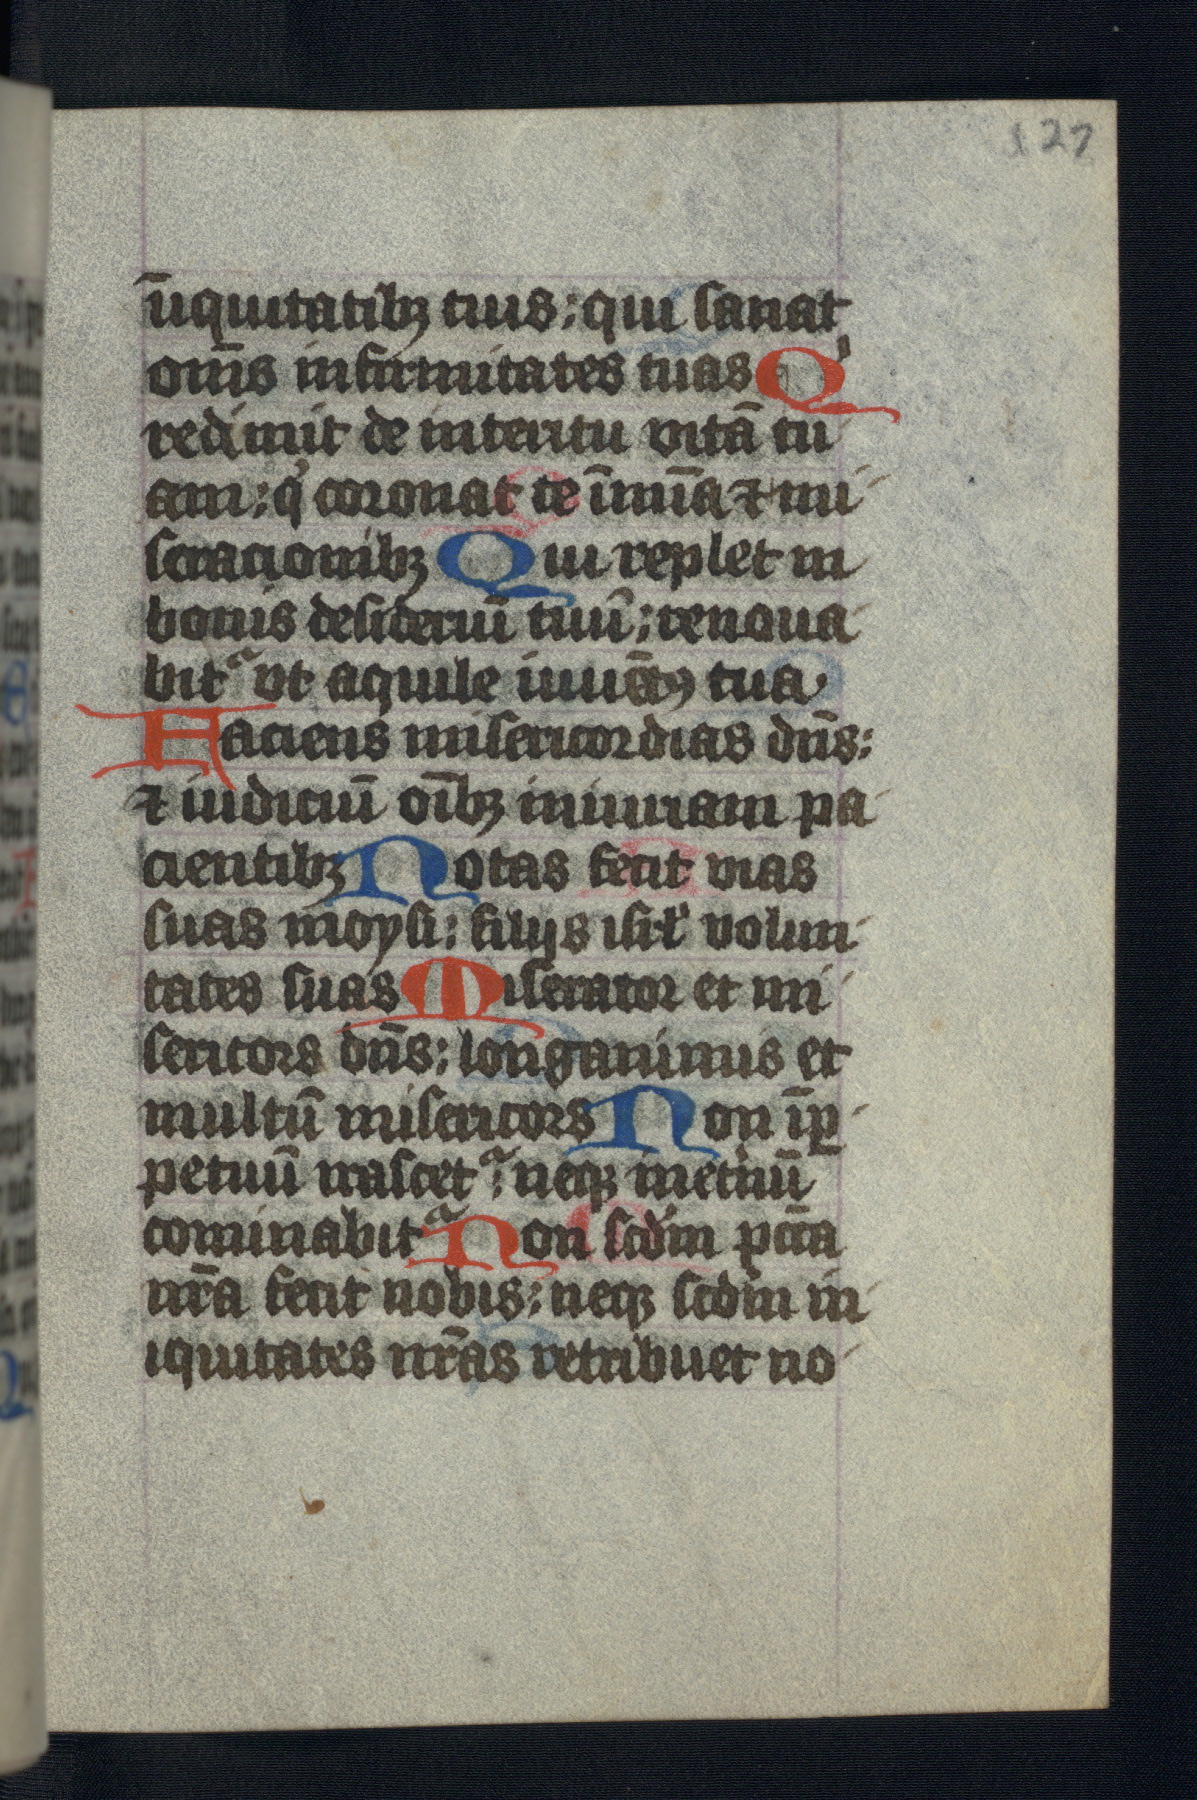 127
iniquitatibꝫ tuis: qui sanat
om̄s infirmitates tuas Qⁱ
redimit de interitu vitā tu
am: qⁱ coronat te ī mīa ⁊ mi
seracionibꝫ Qui replet in
bonis desideriū tuū: renoua
bitᵃ vt aquile iuuētꝰ tua
Faciens misericordias dn̄s:
⁊ iudiciū oībꝫ iniuriam pa
cientibꝫ Notas fecit vias
suas moysi: filijs isrl̄ volun
tates suas Miserator et mi
sericors dn̄s: longanimus et
multū misericors Non ī ꝑ
petuū irascetᵃ: neqꝫ in et̓nū
cominabitᵃ Non scdm̄ pctā
nr̄a fecit nobis: neqꝫ scdm̄ in
iquitates nr̄as retribuet no